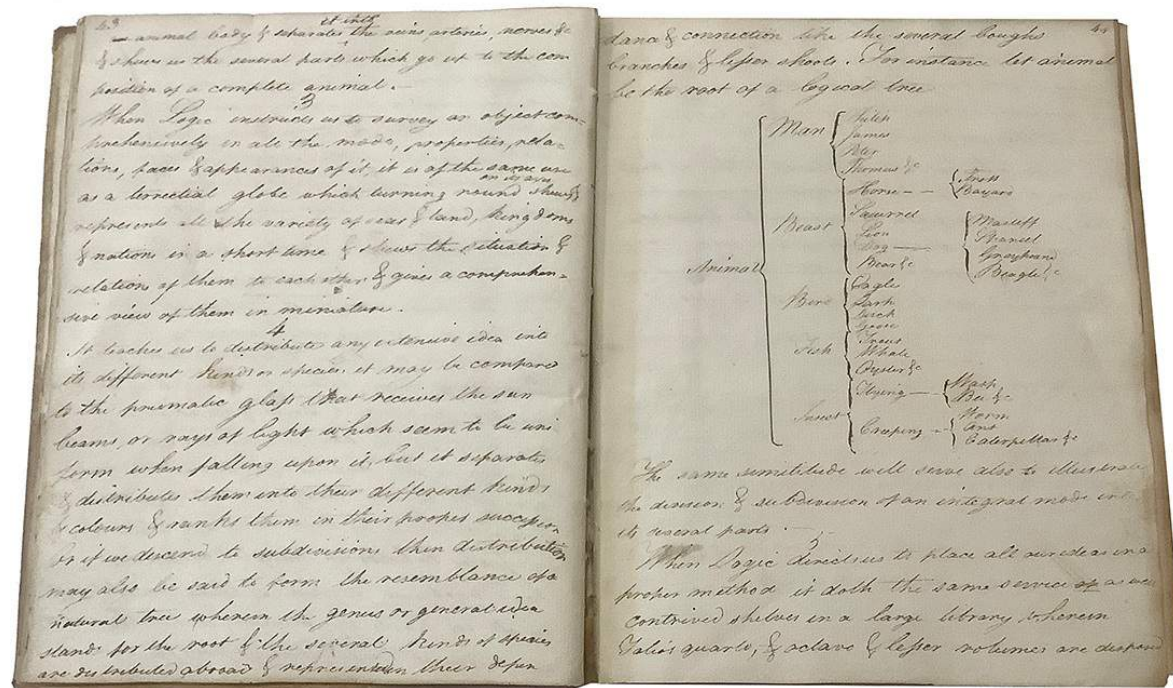 43
it into
animal body & separates the veins arteries, nerves &c
& shews us the several parts which go up to the com=
position of a complete animal. —
3
When Logic instructs us to survey an object com=
prehensively in all the modes, properties, rela=
tions, faces & appearances of it, it is of the same use
on its axis
as a terrectial globe which turning round shews &
represents all the variety of seas & land, kingdoms
& nations in a short time & shews the situation &
relation of them to each other & gives a comprehen=
sive view of them in miniature.
4
It teaches us to distribute any extensive idea into
its different kinds or species. it may be compared
to the prismatic glass that receives the sun
beams, or rays of light which seem to be uni
form when falling upon it, but it separates
& distributes them into their different kinds
& colours & ranks them in their proper succession
or if we descend to subdivisions then distribution
may also be said to form the resemblance of a
natural tree wherein the genus or general idea
stands for the root & the several kinds of species
are distributed abroad & represented in their depen
44
dance & connection like the several boughs
branches & lesser shoots. For instance let animal
be the root of a logical tree
Animal
Man
Philip
James
Peter
Thomas &c
Beast
Horse — — Trott
Bayard
Squirrel
Lion
Dog — Mastiff
Spaniel
Greyhound
Beagle &c
Bear &c
Bird
Eagle
Lark
Duck
Goose
Fish
Trout
Whale
Oyster &c
Insect
Flying — Wasp
Bee &c
Creeping — Worm
Ant
Caterpillar &c
The same similitude will serve also to illustrate
the division & subdivision of an integral mode into
its several parts. —
5
When Logic directs us to place all our ideas in a
proper method it doth the same service as well
contrived shelves in a large library wherein
Folios quarto, & octavo & lesser volumes are disposed